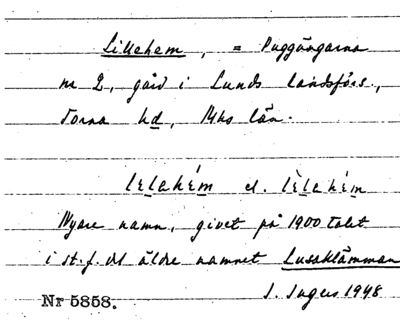 Lillehem, = Puggängarna
nr 2, gård i Lunds landsförs.,
Torna hd, Mhs län.
lelahém el. lèlahém
Nyare namn, givet på 1900 talet
i st. f. det äldre namnet Lusaklämman
Nr 5858. I. Ingers 1948